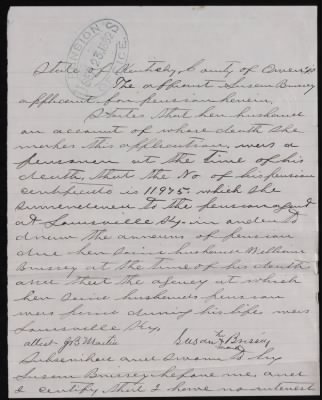 State of Kentucky, County of Owen
The affiant Susan Brissey
applicant for pension herein.
States that her husband
on account of whose death She
makes this application was a
pensioner at the time of his
death, that the No of his pension
certificate is 11975. which she
surrendered to the pension agent
at Louisville Ky. in order to
draw the arrears of pension
due her said husband William
Brissey at the time of his death
and that the agency at which
her said husbands pension
was paid during his life was
Louisville Ky.
attest J B Martin Susan X Brissey
Subscribed and Sworn to by
Susan Brissey before me, and
I certify that I have no interest